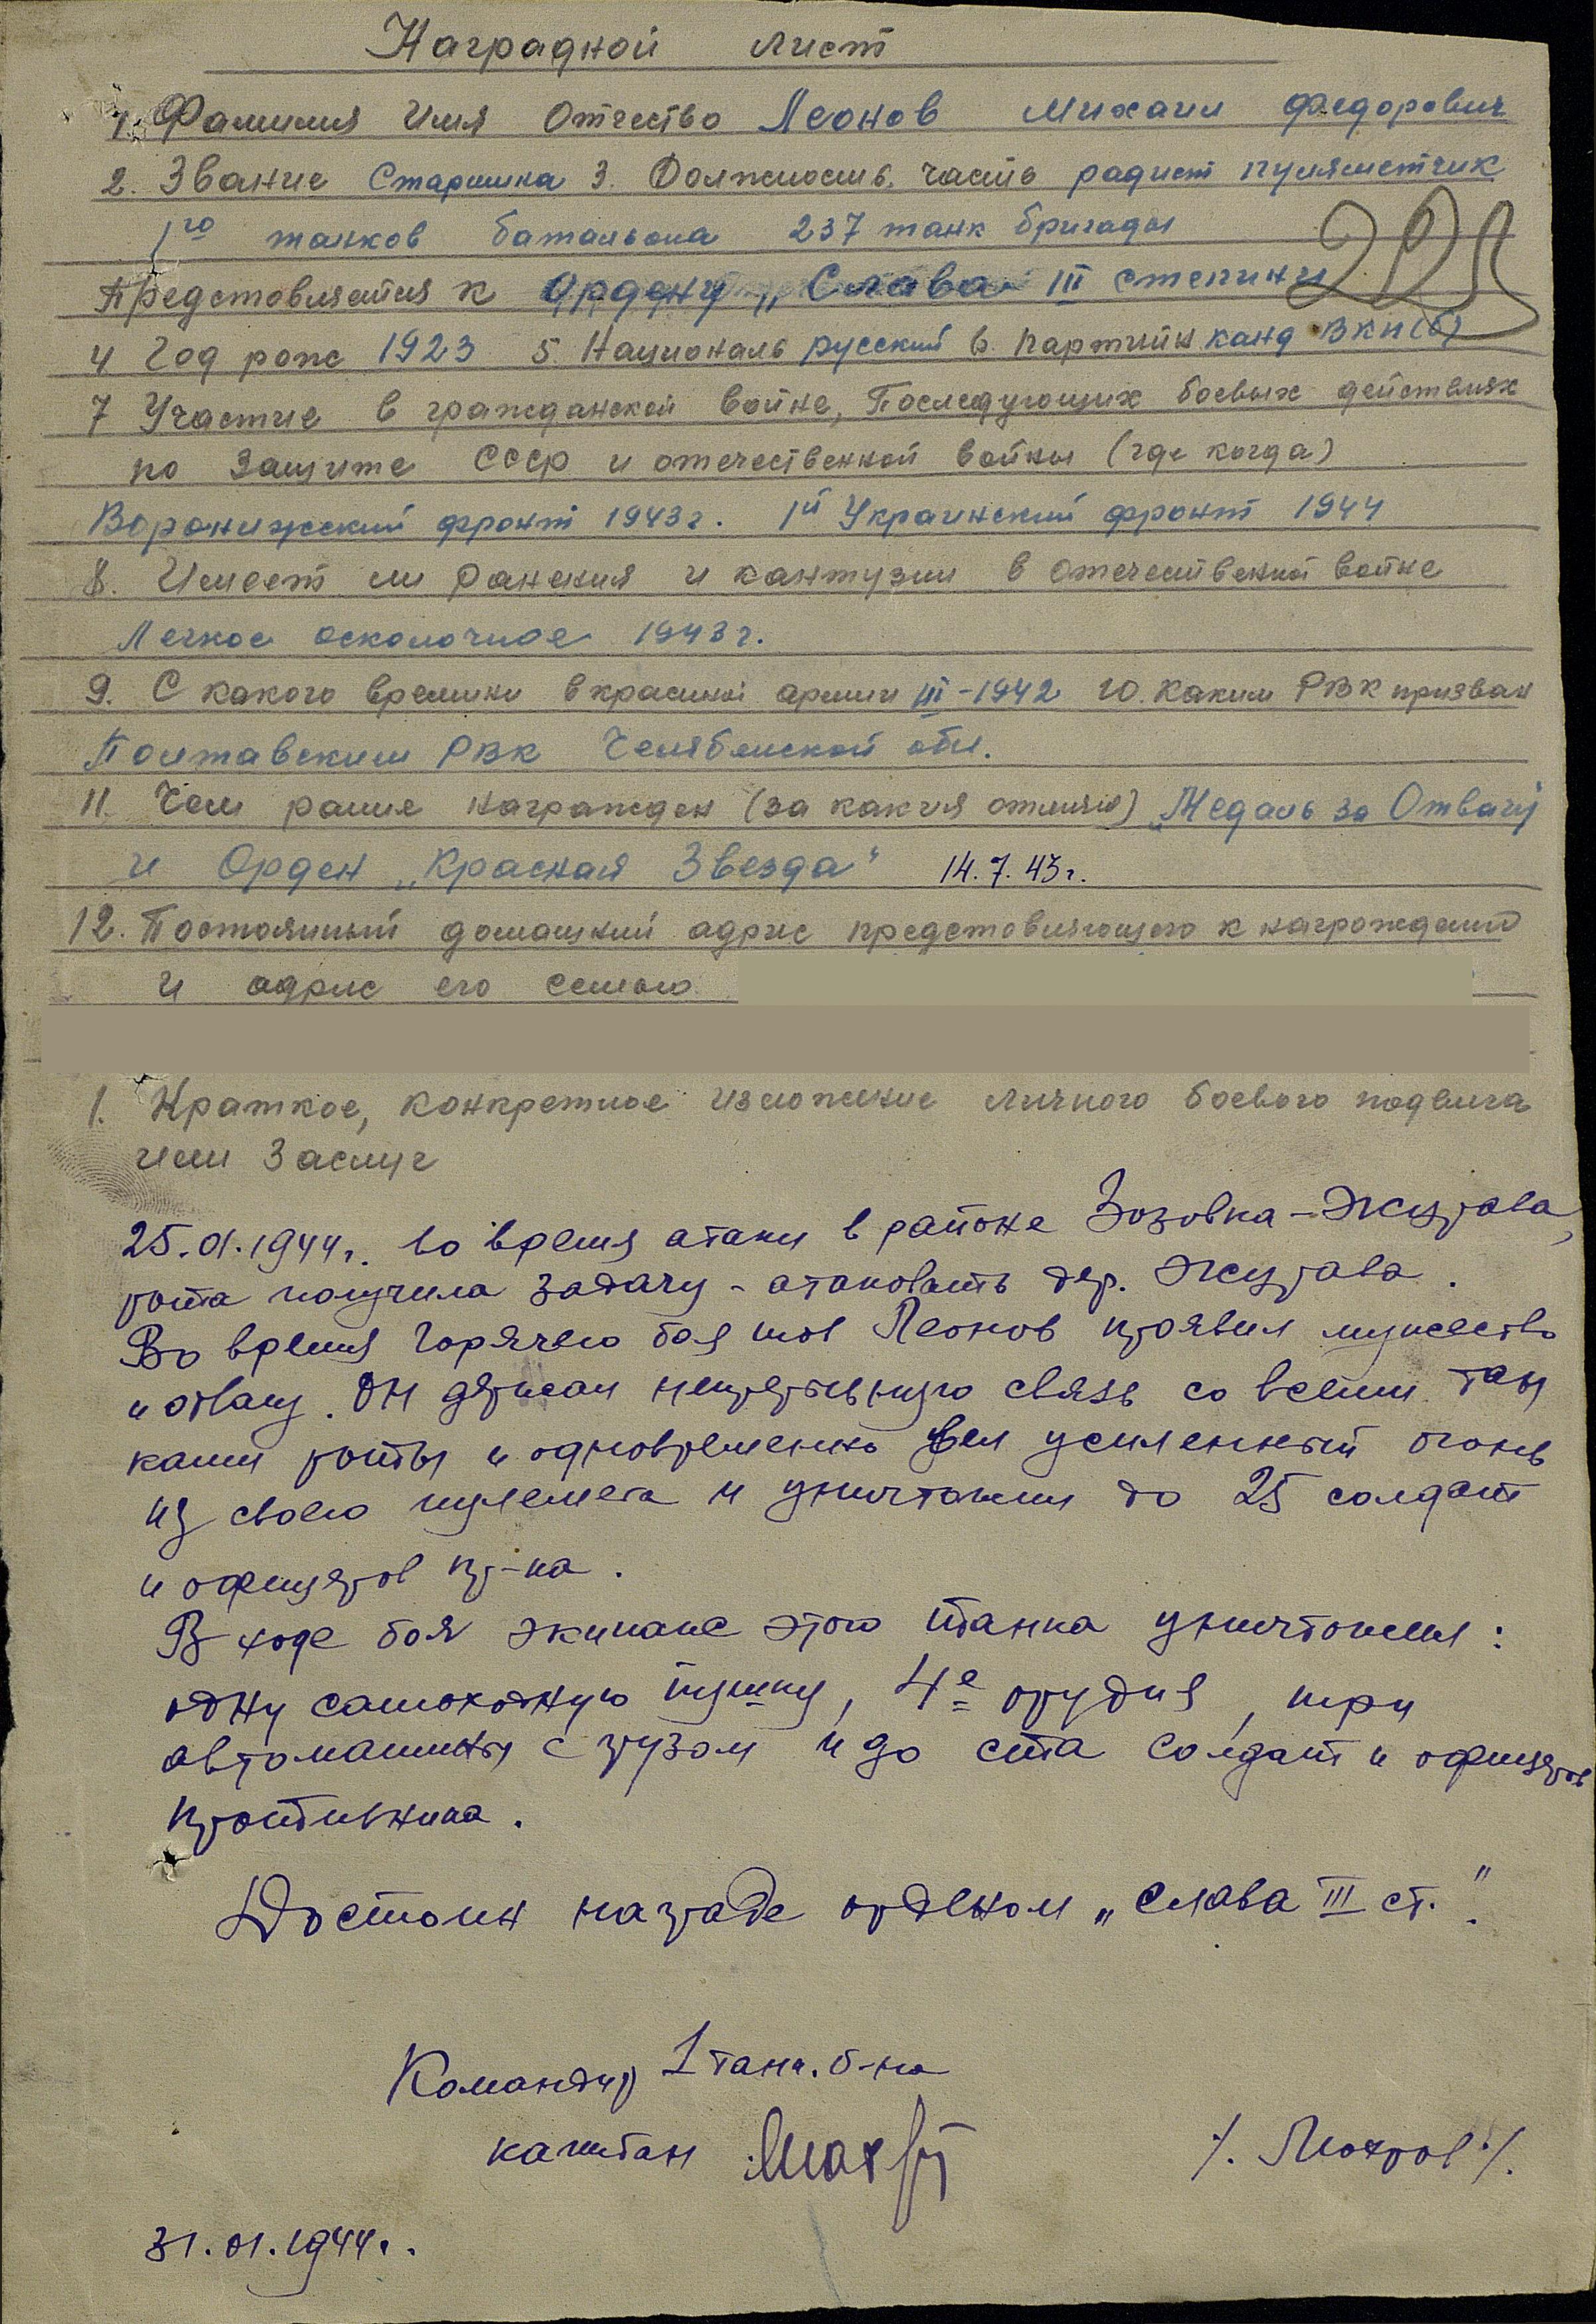 Наградной лист
1. Фамилия Имя Отчество Леонов Михаил Федорович
2. Звание Старшина 3. Должность. часть радист пулямётчик
1го танков батальона 237 танк бригады
225
Предстовляется к Ордену „Слава III степини
4 Год рож 1923 5. Националь русский 6. Партийн канд ВКП(б)
7 Участие в гражданской войне, Последующих боевых действиях
по Защите СССР и отечественной войны (где когда)
Воронижский фронт 1943г. 1й Украинский фронт 1944
8. Имеет ли ранения и кантузии в отечественной войне
Легкое осколочное 1943г.
9. С какого времини в красной армии III-1942 10. Каким РВК призван
Полтавским РВК Челябинской обл.
11. Чем ранше награжден (за какия отличия) „Медаль за Отвагу
и Орден „Красная Звезда" 14.7.43г.
12. Постоянный домашний адрис предстовляющего к награждению
и адрис его семьи
1. Краткое, конкретное изложение личного боевого подвига
или Заслуг
25.01.1944г. во время атаки в районе Зозовка-Жургава,
рота получила задачу - атаковать дер. Жургава.
Во время горячего боя тов Леонов проявил мужество
и отвагу. Он держал непрерывную связь со всеми тан
ками роты и одновременно вел усиленный огонь
из своего пулемета и уничтожил до 25 солдат
и офицеров пр-ка.
В ходе боя экипаж этого танка уничтожил:
одну самоходную пушку, 4е орудия, три
автомашины с грузом и до ста солдат и офицеров
противника.
Достоин награде орденом „Слава III ст."
Командир 1 танк. б-на
капитан
/. Мохров ./.
31.01.1944г.